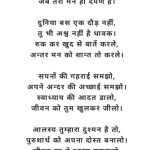 जब तेरा मन ही दर्पण है।
दुनिया बस एक दौड़ नहीं,
तू भी अश्व नहीं है धावक।
रुक कर खुद से बातें करले,
अन्तर मन को शान्त तो करले।
सपनों की गहराई समझो,
अपने अन्दर की अच्छाई समझो।
स्वाध्याय की आदत डालो,
जीवन को तुम खुलकर जीलो।
आलस्य तुम्हारा दुश्मन है तो,
पुरुषार्थ को अपना दोस्त बनालो।